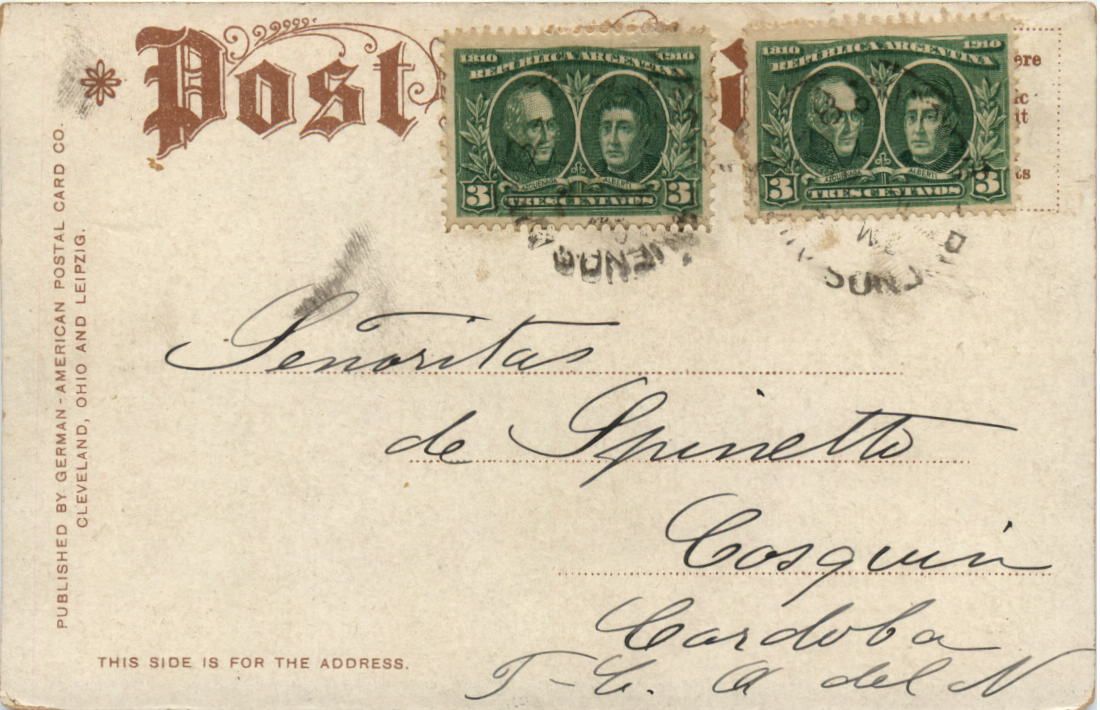 Post
ere
ic
it
ts
1810 1910
REPÚBLICA ARGENTINA
AZCUENAGA ALBERTI
3 TRES CENTAVOS 3
1810 1910
REPÚBLICA ARGENTINA
AZCUENAGA ALBERTI
3 TRES CENTAVOS 3
PUBLISHED BY GERMAN-AMERICAN POSTAL CARD CO.
CLEVELAND, OHIO AND LEIPZIG.
Señoritas
de Spinetto
Cosquin
Cordoba
F-C. C del N
THIS SIDE IS FOR THE ADDRESS.